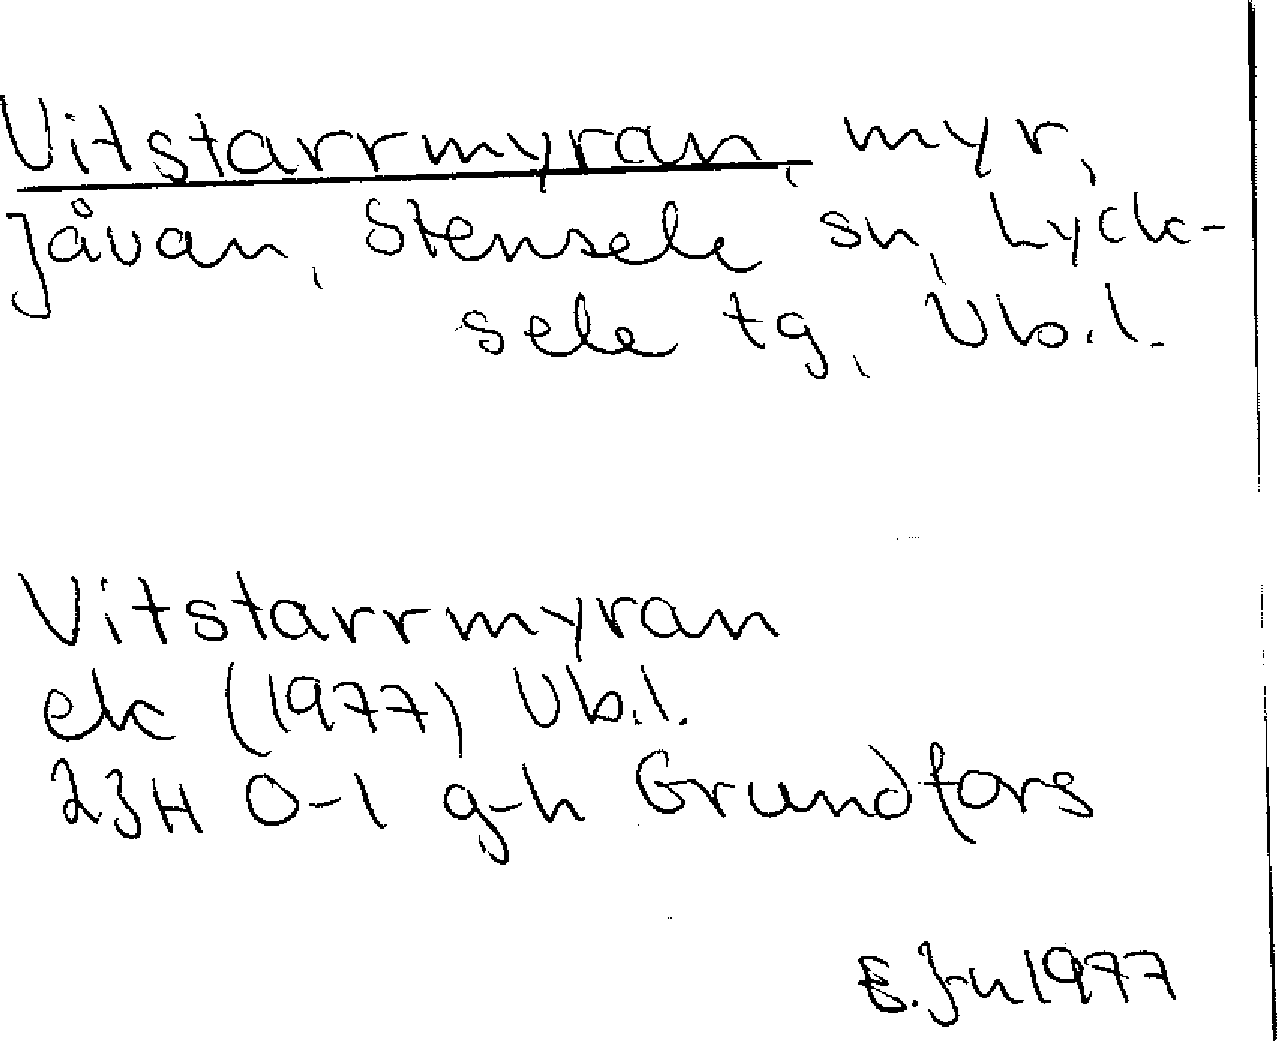 Vitstarrmyran, myr,
Jåvan, Stensele sn, Lyck-
sele tg, Vb.l.
Vitstarrmyran
ek (1977) Vb.l.
23H 0-1 g-h Grundfors
E. Jn 1977